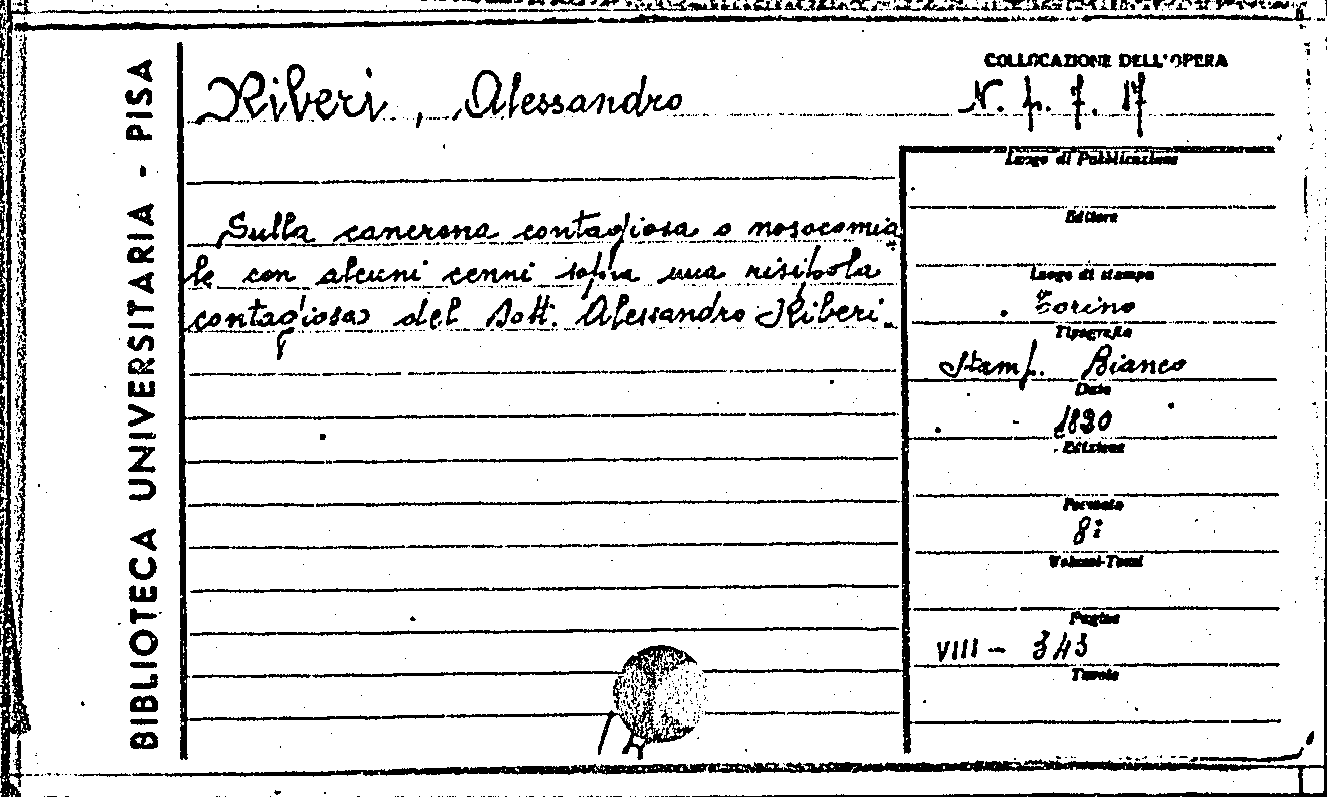 BIBLIOTECA UNIVERSITARIA - PISA
Riberi, Alessandro
COLLOCAZIONE DELL'OPERA
N. p. 7. 17
Sulla cancrena contagiosa o nosocomia
le con alcuni cenni sopra una risipola
contagiosa del Dott. Alessandro Riberi.
Luogo di Pubblicazione
Editore
Luogo di stampa
Torino
Tipografia
Stamp. Bianco
Data
1820
Edizione
Formato
8º
Volumi-Tomi
Pagine
VIII - 343
Tavole